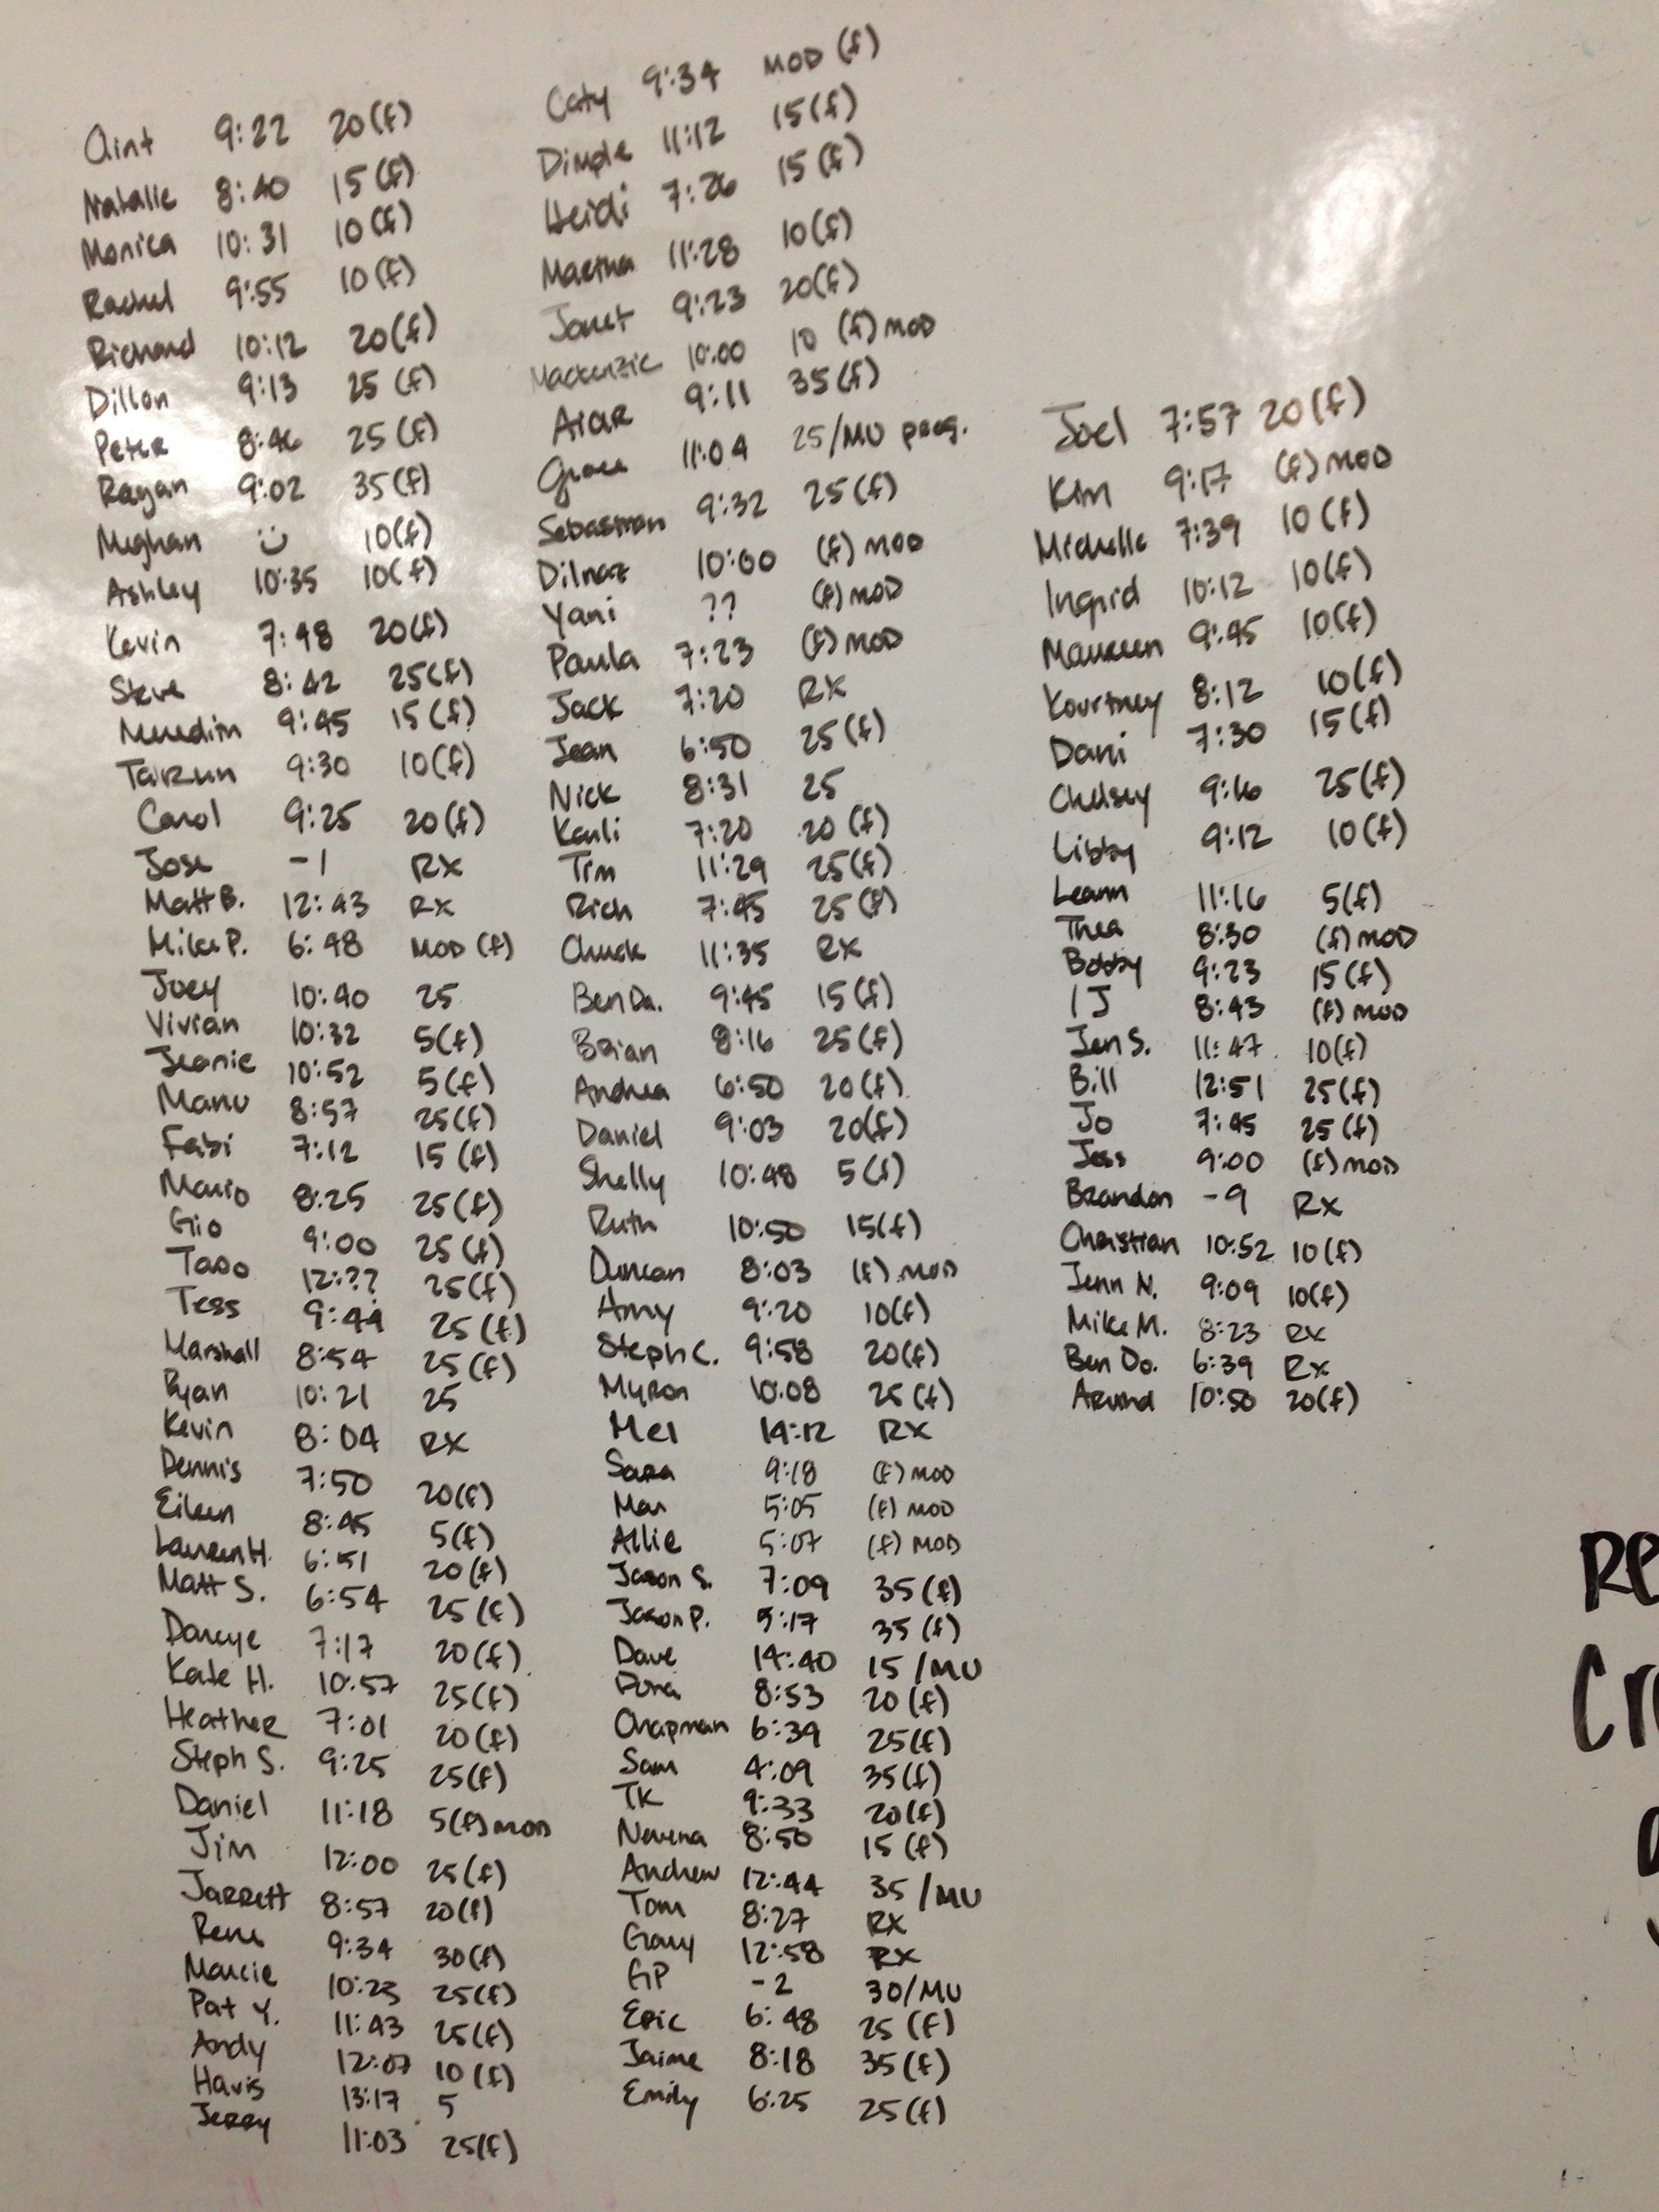 Clint 9:22 20(f)
Natalie 8:40 15(f)
Monica 10:31 10(f)
Rachel 9:55 10(f)
Richard 10:12 20(f)
Dillon 9:13 25(f)
Peter 8:46 25(f)
Ragan 9:02 35(f)
Meghan 10(f)
Ashley 10:35 10(f)
Kevin 7:48 20(f)
Steve 8:42 25(f)
Meredith 9:45 15(f)
Tarzun 9:30 10(f)
Carol 9:25 20(f)
Jose -1 RX
Matt B. 12:43 RX
Mike P. 6:48 MOD (f)
Joey 10:40 25
Vivian 10:32 5(f)
Jeanie 10:52 5(f)
Manu 8:57 25(f)
Fabi 7:12 15(f)
Mario 8:25 25(f)
Gio 9:00 25(f)
Taso 12:?? 25(f)
Tess 9:44 25(f)
Marshall 8:54 25(f)
Ryan 10:21 25
Kevin 8:04 RX
Dennis 7:50 20(f)
Eileen 8:45 5(f)
Lauren H. 6:51 20(f)
Matt S. 6:54 25(f)
Darcye 7:17 20(f)
Kate H. 10:57 25(f)
Heather 7:01 20(f)
Steph S. 9:25 25(f)
Daniel 11:18 5(f) MOD
Jim 12:00 25(f)
Jarrett 8:57 20(f)
Rene 9:34 30(f)
Marcie 10:23 25(f)
Pat Y. 11:43 25(f)
Andy 12:07 10(f)
Havis 13:17 5
Jerry 11:03 25(f)
Caty 9:34 MOD (f)
Dimple 11:12 15(f)
Heidi 7:26 15(f)
Martha 11:28 10(f)
Janet 9:23 20(f)
Mackenzie 10:00 10 (f) MOD
Aiar 9:11 35(f)
Grace 11:04 25/MU prog.
Sebastian 9:32 25(f)
Dilnaz 10:00 (f) MOD
Yani ?? (f) MOD
Paula 7:23 (f) MOD
Jack 7:20 RX
Jean 6:50 25(f)
Nick 8:31 25
Karli 7:20 20(f)
Tim 11:29 25(f)
Rich 7:45 25(f)
Chuck 11:35 RX
Ben Da. 9:45 15(f)
Brian 8:16 25(f)
Andrea 6:50 20(f)
Daniel 9:03 20(f)
Shelly 10:48 5(f)
Ruth 10:50 15(f)
Duncan 8:03 (f) MOD
Amy 9:20 10(f)
Steph C. 9:58 20(f)
Myron 10:08 25(f)
Mel 14:12 RX
Sara 9:18 (f) MOD
Mar 5:05 (f) MOD
Allie 5:07 (f) MOD
Jason S. 7:09 35(f)
Jason P. 5:17 35(f)
Dave 14:40 15/MU
8:53 20(f)
Chapman 6:39 25(f)
Sam 4:09 35(f)
TK 9:33 20(f)
Nevena 8:50 15(f)
Andrew 12:44 35/MU
Tom 8:27 RX
Gary 12:58 RX
GP -2 30/MU
Eric 6:48 25(f)
Jaime 8:18 35(f)
Emily 6:25 25(f)
Joel 7:57 20(f)
Kim 9:17 (f) MOD
Michelle 7:39 10(f)
Ingrid 10:12 10(f)
Maureen 9:45 10(f)
Kourtney 8:12 10(f)
Dani 7:30 15(f)
Chelsey 9:16 25(f)
Libby 9:12 10(f)
Leann 11:16 5(f)
Thea 8:30 (f) MOD
Bobby 9:23 15(f)
IJ 8:43 (f) MOD
Jen S. 11:47 10(f)
Bill 12:51 25(f)
Jo 7:45 25(f)
Jess 9:00 (f) MOD
Brandon -9 RX
Christian 10:52 10(f)
Jenn N. 9:09 10(f)
Mike M. 8:23 RX
Ben Do. 6:39 RX
Arvind 10:50 20(f)